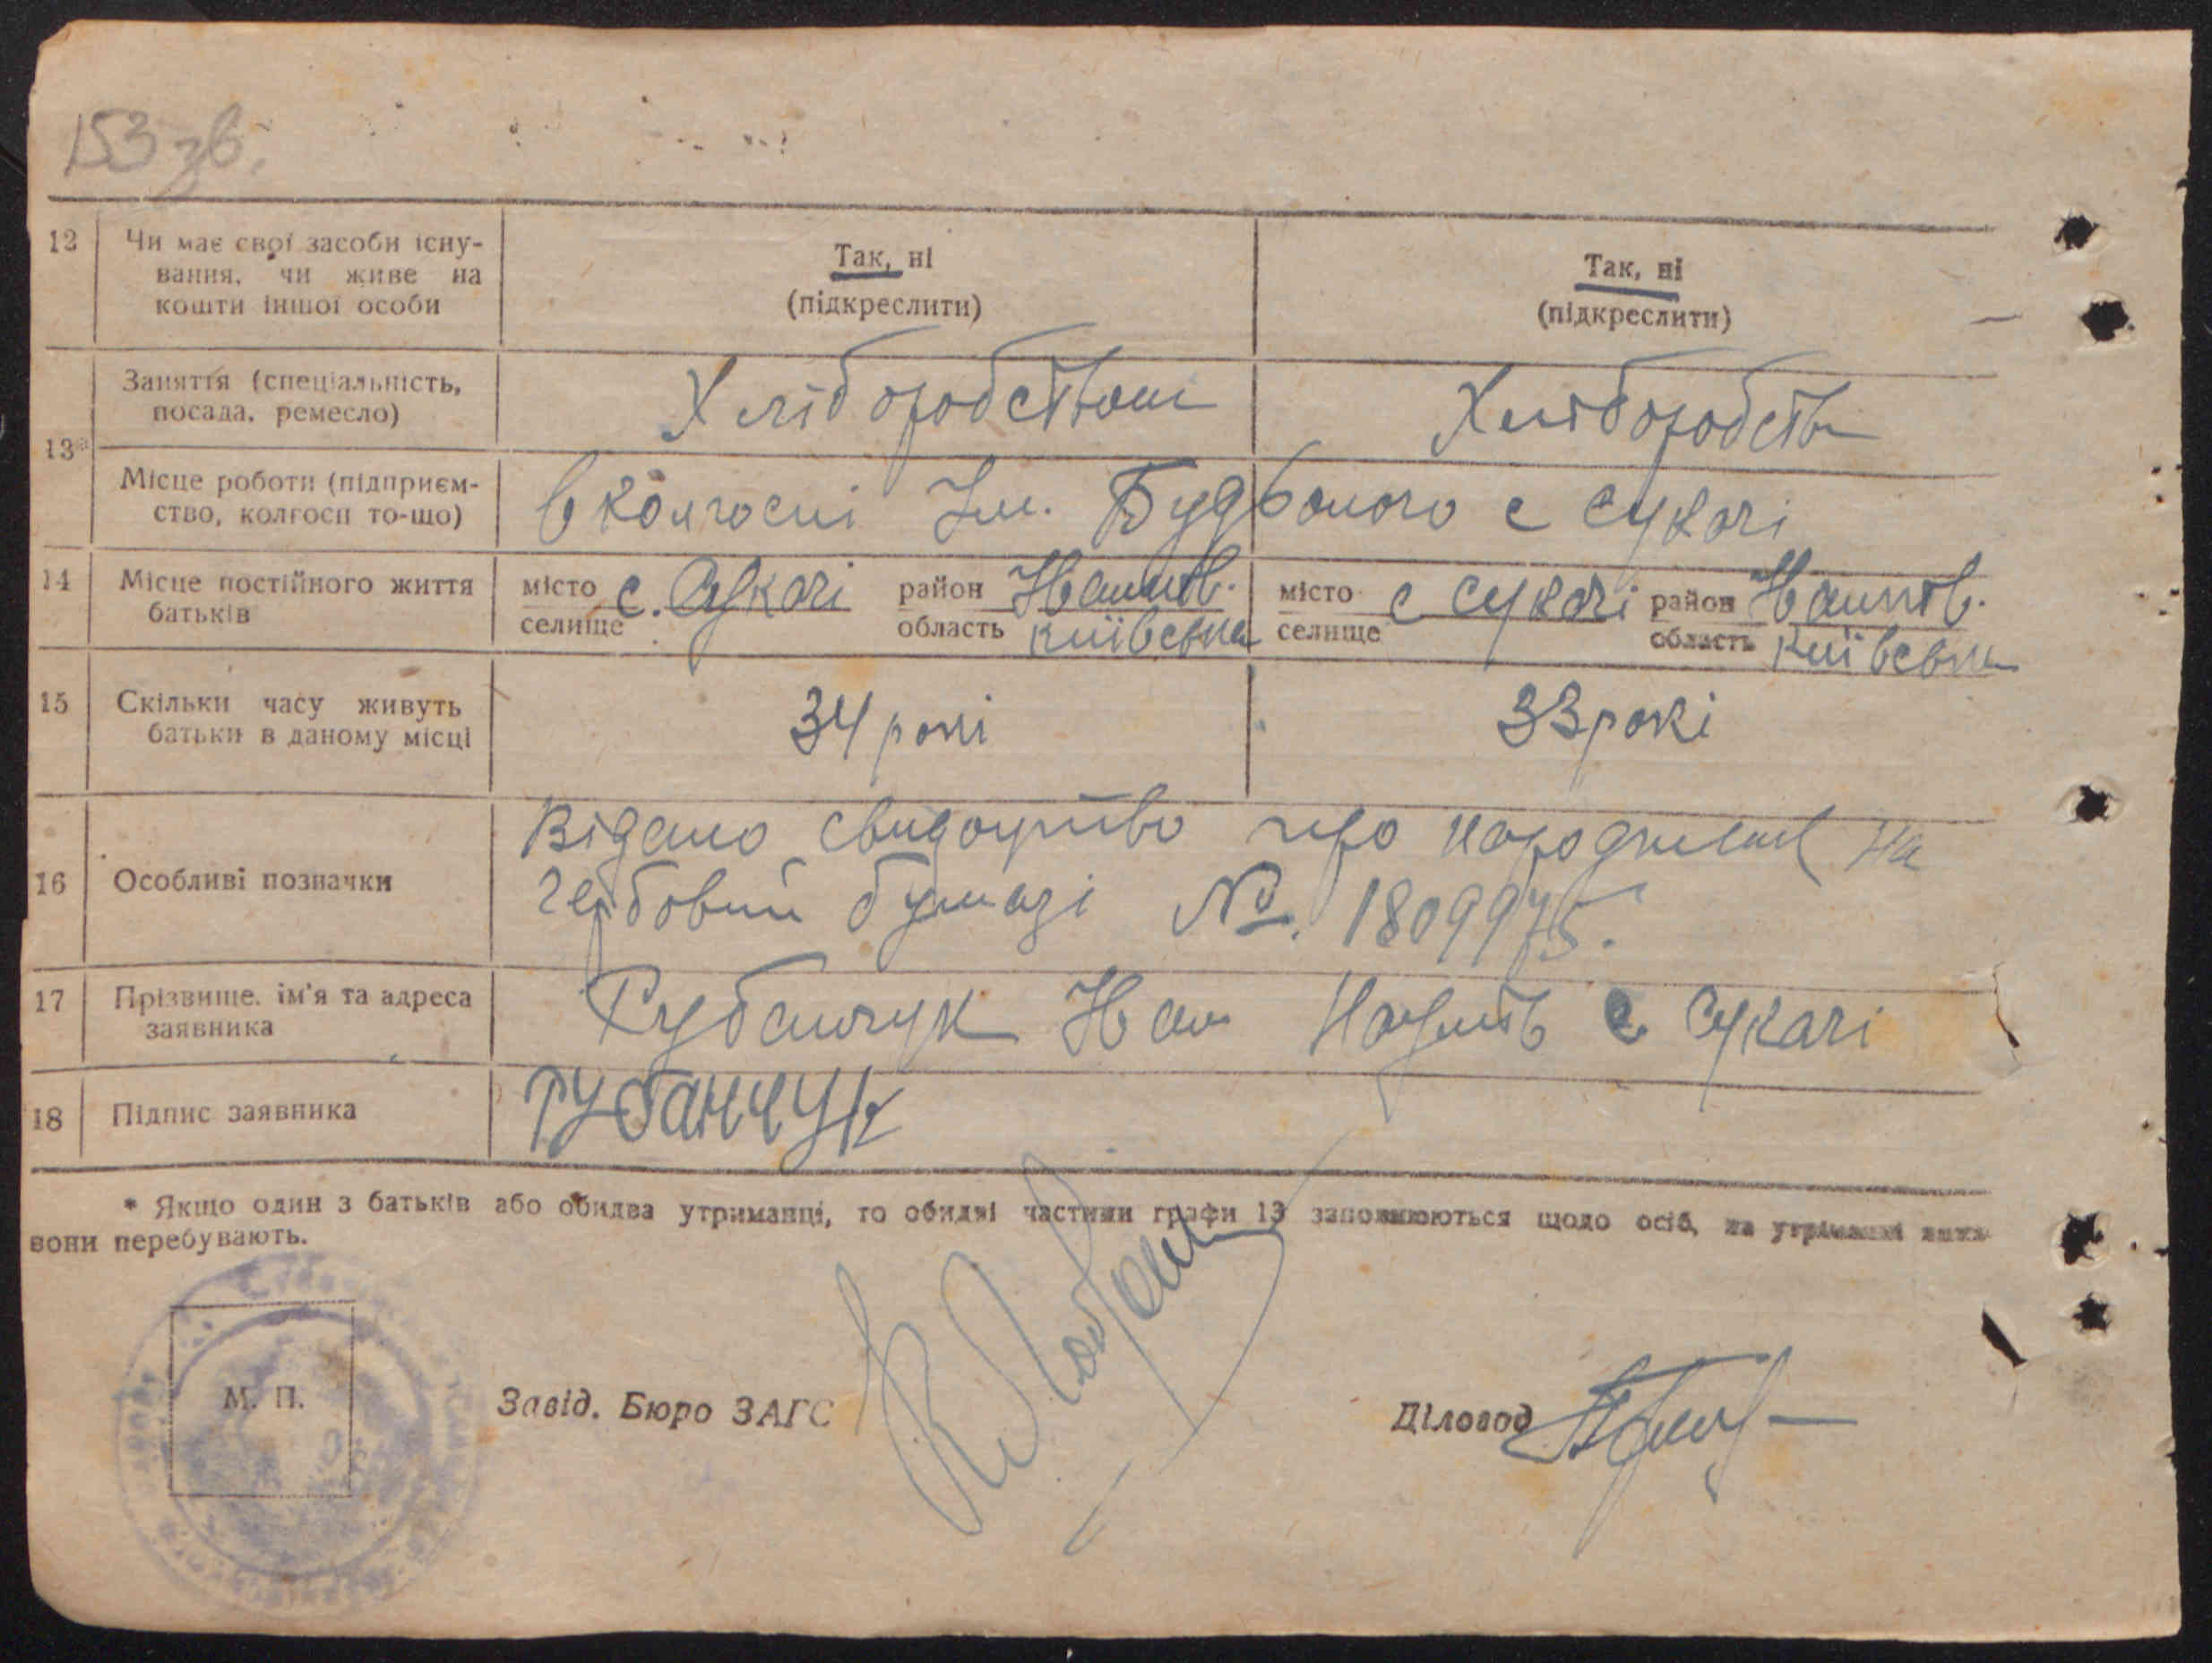 153 зв.
12 Чи має свої засоби існу-
вання, чи живе на
кошти іншої особи
Так, ні
(підкреслити)
Так, ні
(підкреслити)
13*
Заняття (спеціальність,
посада, ремесло)
Хліборобством
Хліборобств
Місце роботи (підприєм-
ство, колгосп то-що)
в колгоспі Ім. Будьоного с Сукачі
14 Місце постійного життя
батьків
місто
селище
с. Сукачі
район Іванків.
область київська
місто
селище
с Сукачі
район Іванків.
область київська
15 Скільки часу живуть
батьки в даному місці
34 рокі
33 рокі
16 Особливі позначки
Відано свидоцтво про народження На
гербовій бумазі №. 1809975.
17 Прізвище, ім'я та адреса
заявника
Рубанчук Іван с Сукачі
18 Підпис заявника
Рубанчук
* Якщо один з батьків або обидва утриманці, то обидві частини графи 13 заповнюються щодо осіб, на утриманні яких
вони перебувають.
М. П.
Завід. Бюро ЗАГС
Діловод